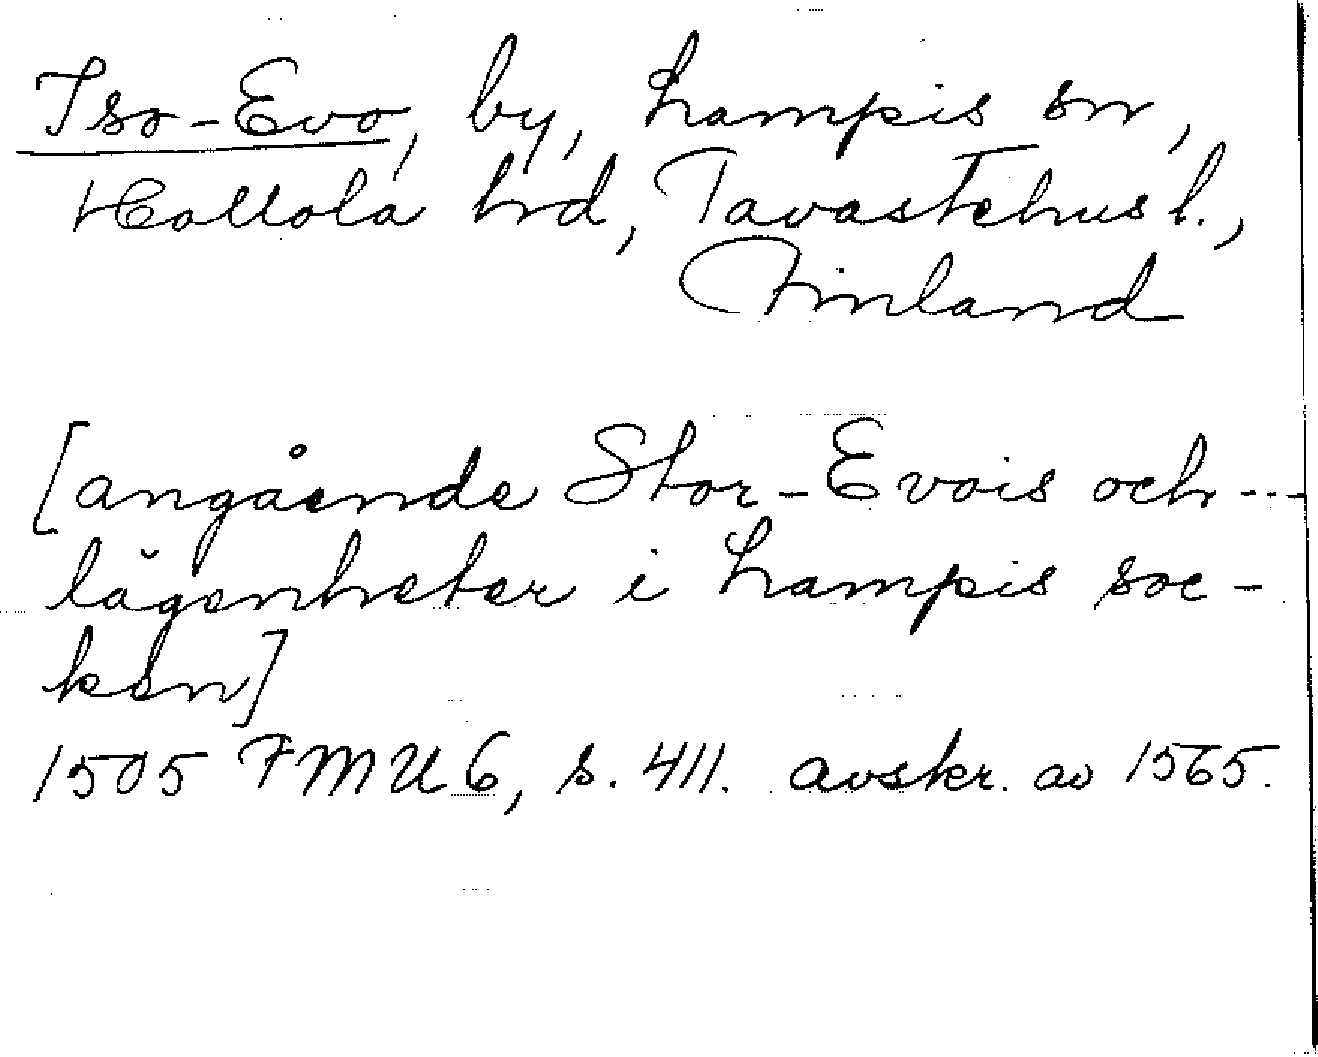 Iso-Evo, by, Lampis sn,
Hollola hrd, Tavastehus l.,
Finland
[angående Stor-Evois och ---
lägenheter i Lampis soc-
ken]
1505 FMU 6, s. 411. avskr. av 1565.